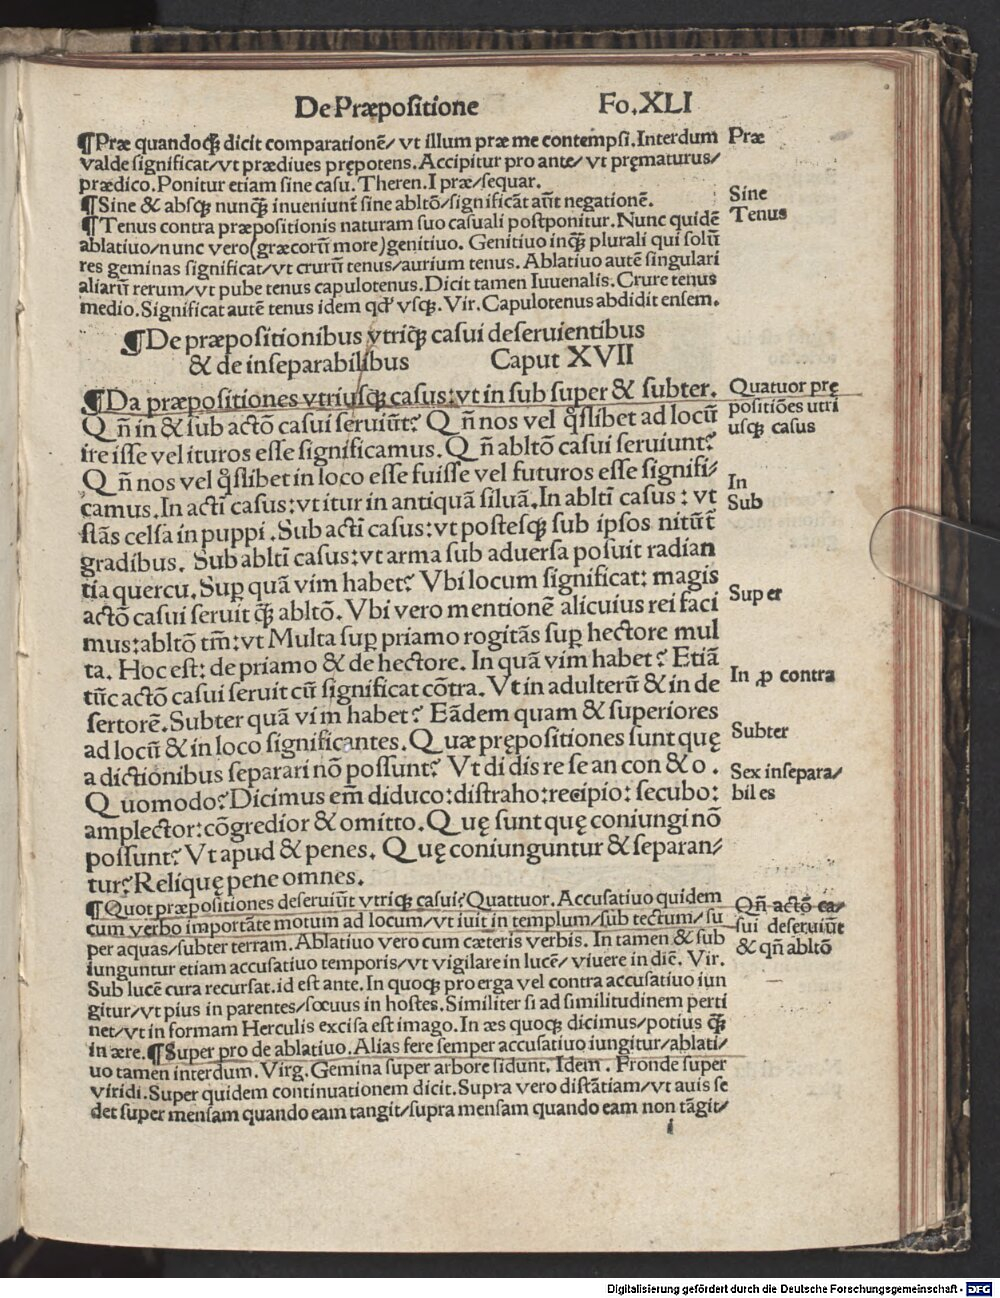 De Præpositione Fo.XLI
¶Præ quandoqȝ dicit comparationē/ vt illum præ me contempsi.Interdum
Præ
valde significat/vt prædiues prępotens.Accipitur pro ante/ vt pręmaturus/
prædico.Ponitur etiam sine casu. Theren.I præ/sequar.
¶Sine & absqȝ nunqȝ̄ inueniunt̄ sine abltō/significāt aūt negationē.
Sine
¶Tenus contra præpositionis naturam suo casuali postponitur.Nunc quidē
Tenus
ablatiuo/nunc vero(græcorū more)genitiuo. Genitiuo inqȝ̄ plurali qui solū
res geminas significat/vt crurū tenus/aurium tenus. Ablatiuo autē singulari
aliarū rerum/vt pube tenus capulotenus.Dicit tamen Iuuenalis.Crure tenus
medio.Significat autē tenus idem qd' vsqȝ. Vir.Capulotenus abdidit ensem.
¶De præpositionibus vtriqȝ casui deseruientibus
& de inseparabilibus Caput XVII
¶Da præpositiones vtriusqȝ casus:vt in sub super & subter.
Quatuor prę
positiōes utri
usqȝ casus
Qn̄ in & sub actō casui seruiūt? Qn̄ nos vel q̊slibet ad locū
ire isse vel ituros esse significamus.Qn̄ abltō casui seruiunt?
Qn̄ nos vel q̊slibet in loco esse fuisse vel futuros esse signifi/
In
camus.In acti casus:vt itur in antiquā siluā.In ablti casus : vt
Sub
stās celsa in puppi .Sub acti casus:vt postesqȝ sub ipsos nitūt̄
gradibus. Sub ablti casus:vt arma sub aduersa posuit radian
tia quercu.Suꝑ quā vim habet? Vbi locum significat: magis
Super
actō casui seruit qȝ̄ abltō. Vbi vero mentionē alicuius rei faci
mus:abltō tm̄:vt Multa suꝑ priamo rogitās suꝑ hectore mul
ta. Hoc est: de priamo & de hectore. In quā vim habet ? Etiā
In ꝓ contra
tūc actō casui seruit cū significat cōtra.Vt in adulterū & in de
sertorē.Subter quā vim habet? Eādem quam & superiores
Subter
ad locū & in loco significantes.Quæ prępositiones sunt quę
a dictionibus separari nō possunt? Vt di dis re se an con & o .
Sex insepara/
biles
Quomodo?Dicimus em̄ diduco:distraho:recipio: secubo:
amplector:cōgredior & omitto.Quę sunt quę coniungi nō
possunt? Vt apud & penes. Quę coniunguntur & separan/
tur?Reliquę pene omnes.
¶Quot præpositiones deseruiūt vtriqȝ casui?Quattuor. Accusatiuo quidem
Qn̄ actō ca/
sui deseruiūt
& qn̄ abltō
cum verbo importāte motum ad locum/vt iuit in templum/sub tectum/su
per aquas/subter terram.Ablatiuo vero cum cæteris verbis. In tamen & sub
iunguntur etiam accusatiuo temporis/vt vigilare in lucē/ viuere in diē. Vir.
Sub lucē cura recursat.id est ante.In quoqȝ pro erga vel contra accusatiuo iun
gitur/vt pius in parentes/sæuus in hostes.Similiter si ad similitudinem perti
net/vt in formam Herculis excisa est imago.In æs quoqȝ dicimus/potius qȝ̄
in ære.¶Super pro de ablatiuo.Alias fere semper accusatiuo iungitur/ablati/
uo tamen interdum.Virg.Gemina super arbore sidunt. Idem . Fronde super
viridi.Super quidem continuationem dicit.Supra vero distātiam/vt auis se
det super mensam quando eam tangit/supra mensam quando eam non tāgit/
i
Digitalisierung gefördert durch die Deutsche Forschungsgemeinschaft - DFG